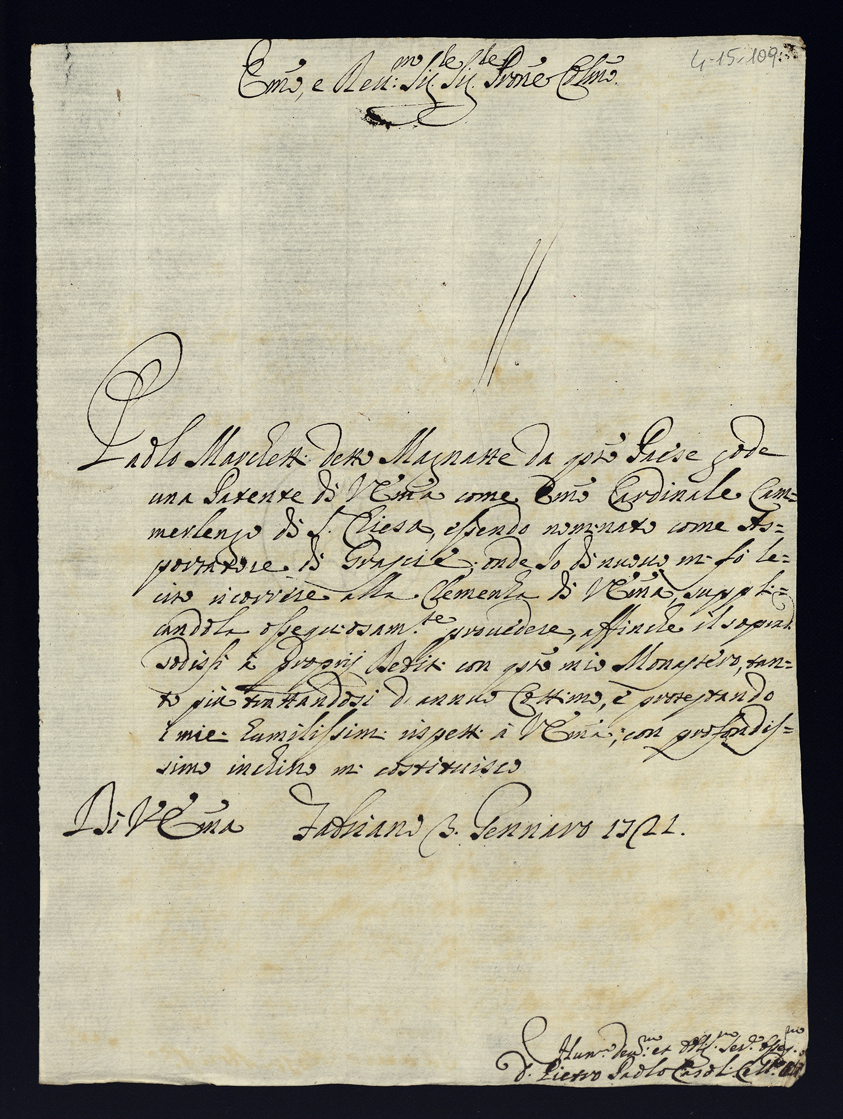 4-15-109
Em̃o, e Reu:mo Sig.le Sig.le Pron̄e Colm̃o.
Paolo Marchetti detto Magnatte da qsto Paese gode
una Patente di V Em̃a come Em̃o Cardinale Cam=
merlengo di S. Chiesa, essendo nominato come As=
portatore di Grascie: onde Io di nuouo mi fò le=
cito ricorrere alla Clemenza di V Em̃a, suppli=
candola ossequiosam.te prouedere, affinche il sopra
sodisfi à proprij Debiti con qsto mio Monastero, tan=
to più trattandosi di annuo Cottimo, e protestando
i miei humilissimi rispetti à V Em̃a; con profondis=
simo inchino mi costituisco
Di V Em̃a Fabriano 3. Gennaro 1721.
Hum.o Deu.mo et Obl.mo Ser.e Osseq.mo
D. Pietro Paolo